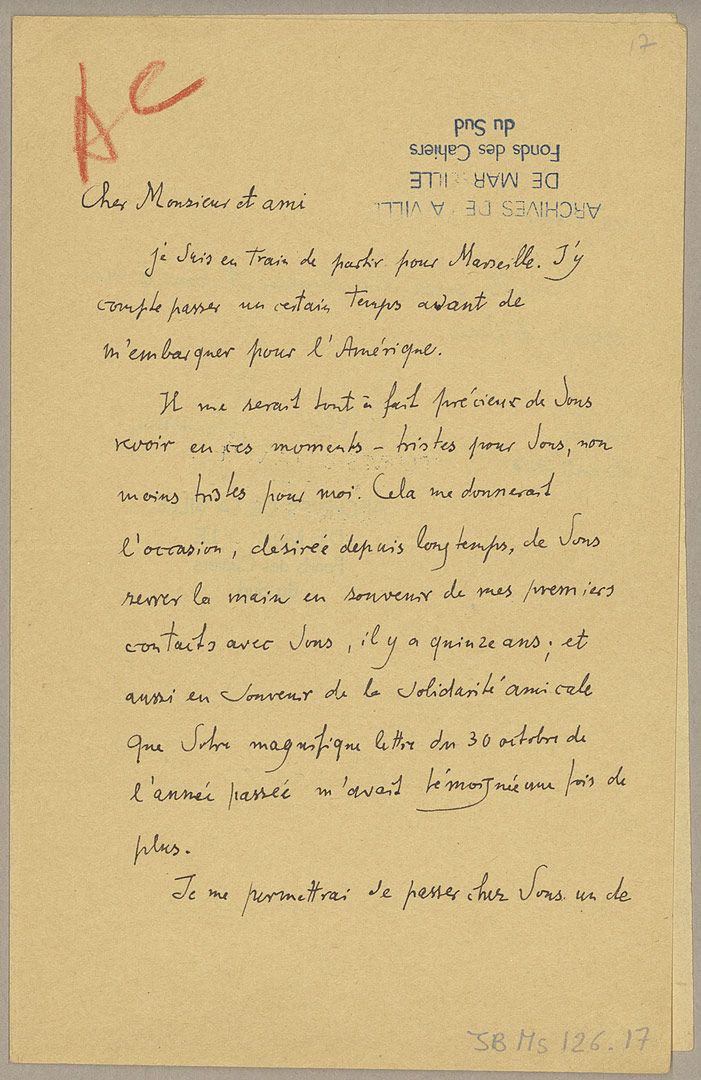 17
AC
ARCHIVES DE LA VILLE
DE MARSEILLE
Fonds des Cahiers
du Sud
Cher Monsieur et ami
je suis en train de partir pour Marseille. J'y
compte passer un certain temps avant de
m'embarquer pour l'Amérique.
Il me serait tout à fait précieux de Vous
revoir en ces moments – tristes pour Vous, non
moins tristes pour moi. Cela me donnerait
l'occasion, désirée depuis longtemps, de Vous
serrer la main en souvenir de mes premiers
contacts avec Vous, il y a quinze ans; et
aussi en souvenir de la solidarité amicale
que Votre magnifique lettre du 30 octobre de
l'année passée m'avait témoignée une fois de
plus.
Je me permettrai de passer chez Vous un de
JB Ms 126.17